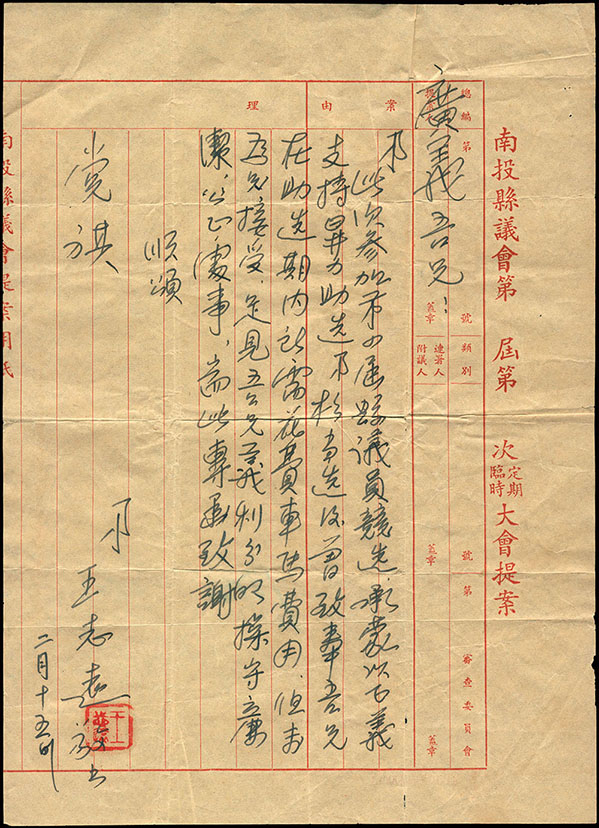 南投縣議會第 屆第 次定期臨時大會提案
總編第 號 類別 號 第 審查委員會
提案人 蓋章 連署人附議人 蓋章 蓋章
案由
理
廣義吾兄：
弟此次參加第 屆縣議員競選，承蒙以大義
支持昇力助選，弟於當選後曾致奉吾兄
在助選期內所需花費車馬費用，但未
為兄接受，足見吾兄義利分明操守廉
潔，公正處事，耑此專函致謝
順頌
党祺
弟 王志遠敬上
二月十五日
南投縣議會提案用紙